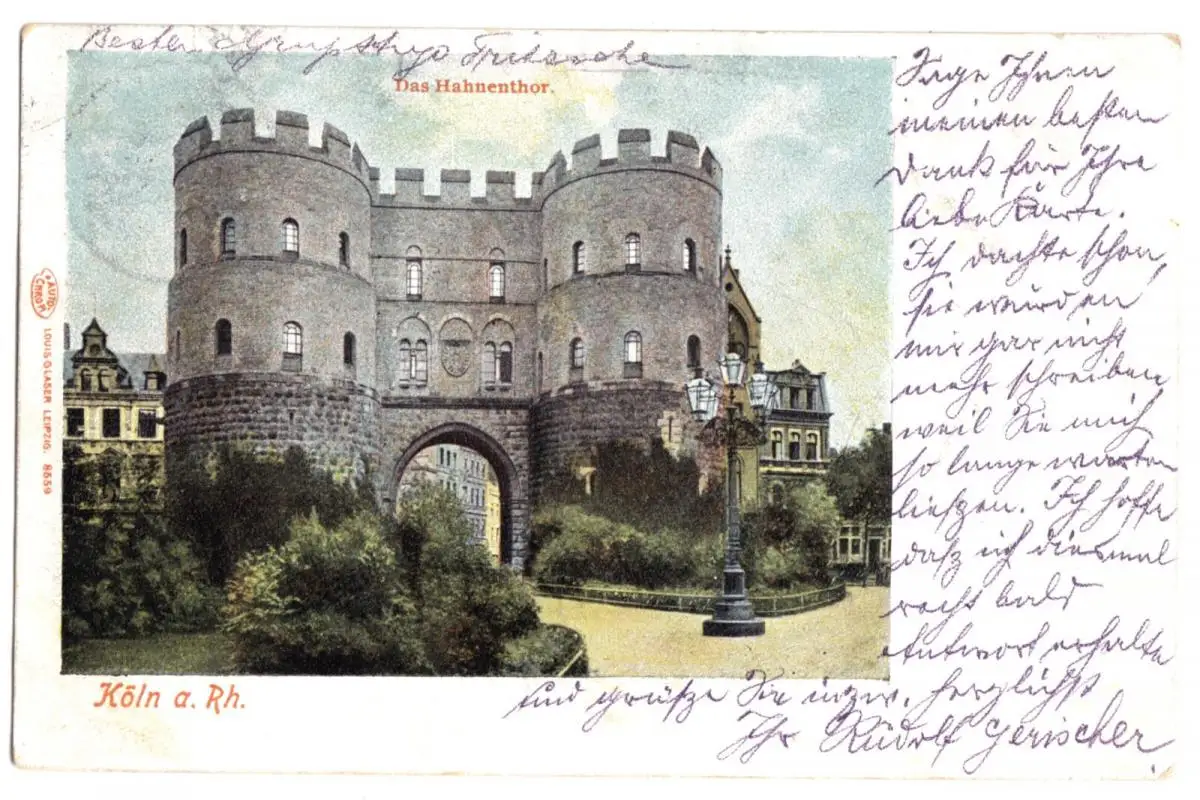 Besten Gruß Fritzsche
Das Hahnenthor.
Sage Ihnen
meinen besten
Dank für Ihre
liebe Karte.
Ich dachte schon,
sie würden
mir gar nicht
mehr schreiben,
weil Sie mich
so lange warten
ließzen. Ich hoffe
daß ich diesmal
recht bald
Antwort erhalte
und grüße Sie inzw. herzlichst
Ihr Rudolf Gerischer
AUTO CHROM
LOUIS GLASER LEIPZIG. 8559
Köln a. Rh.